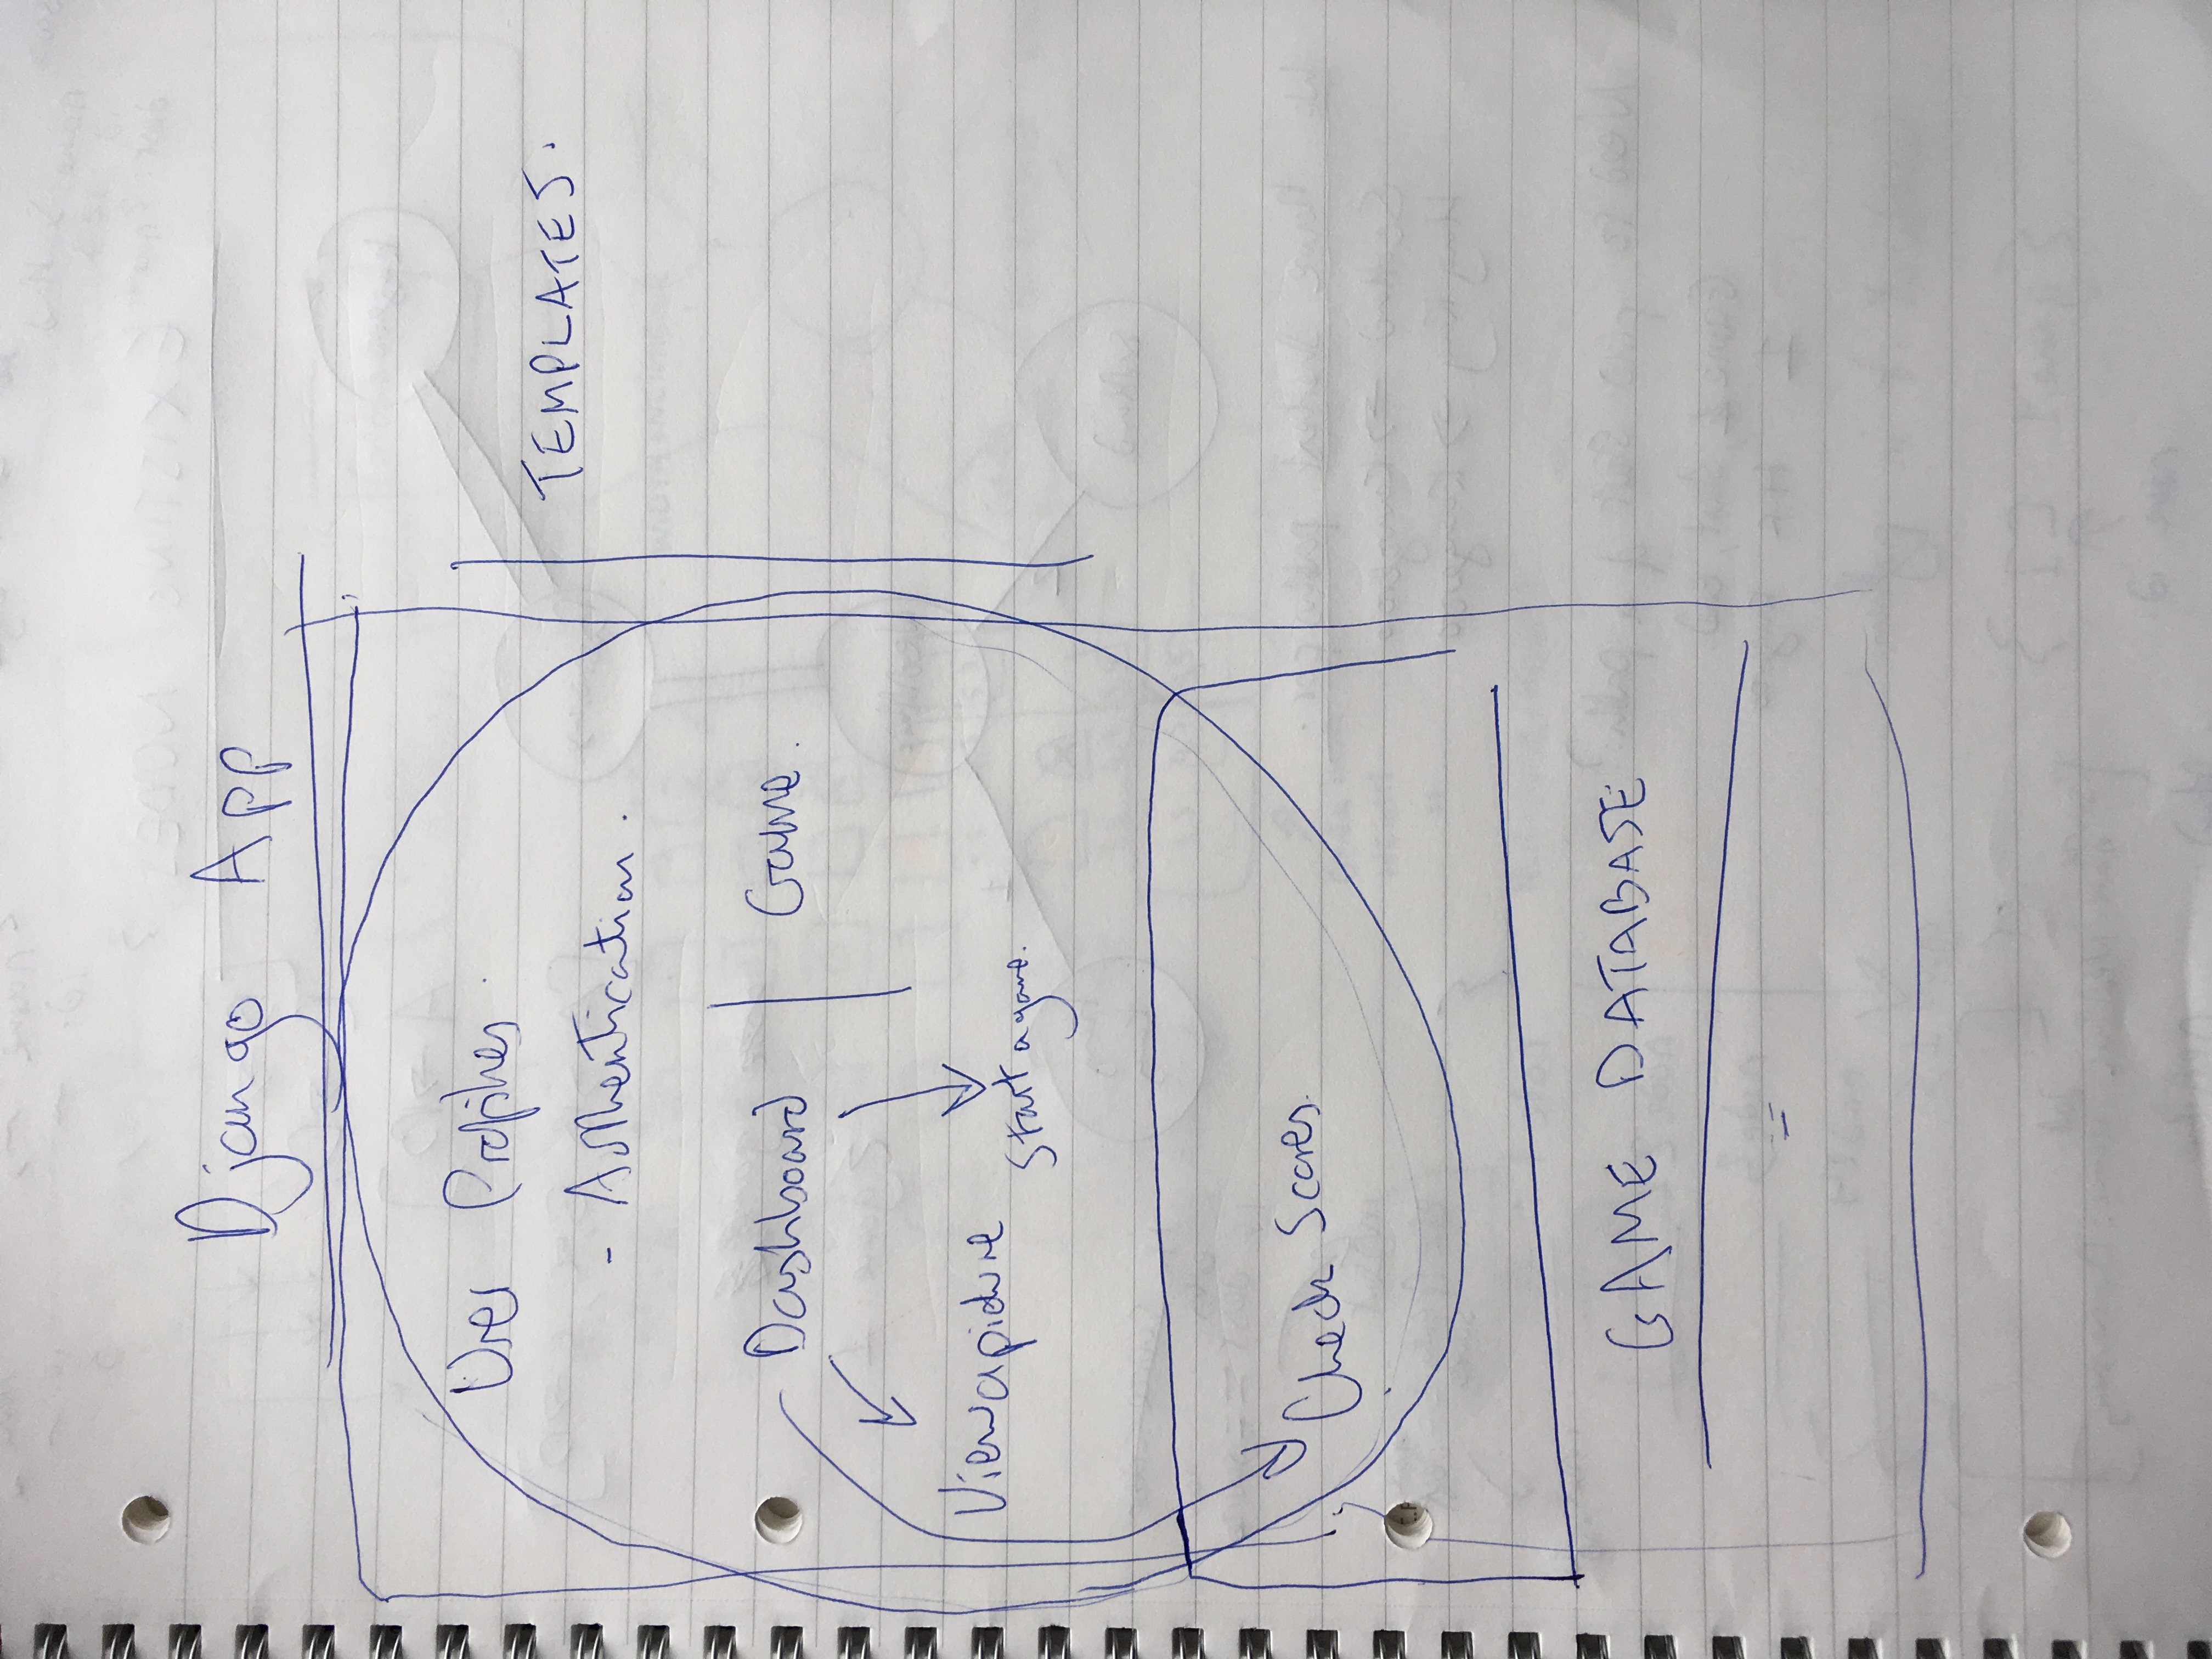 Django App
User Profiles.
TEMPLATES.
- Authentication.
Dashboard | Game.
View a picture
Start a game.
Check Scores.
GAME DATABASE